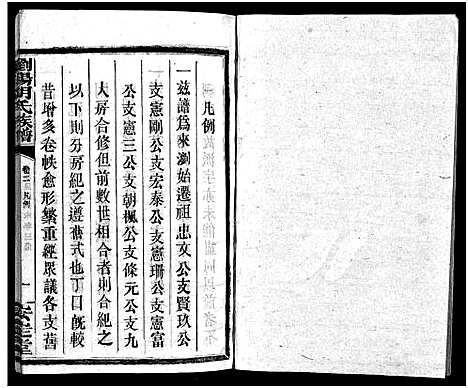 凡例
一兹譜爲來瀏始遷祖忠文公支賢玖公
支憲剛公支宏泰公支憲珊公支憲富
公支憲三公支朝楓公支條元公支九
大房合修但前數世相合者則合紀之
以下則分房紀之遵舊式也丁口旣較
昔增多卷帙愈形繁重經衆議各支舊
瀏陽胡氏族譜
卷二
凡例
一